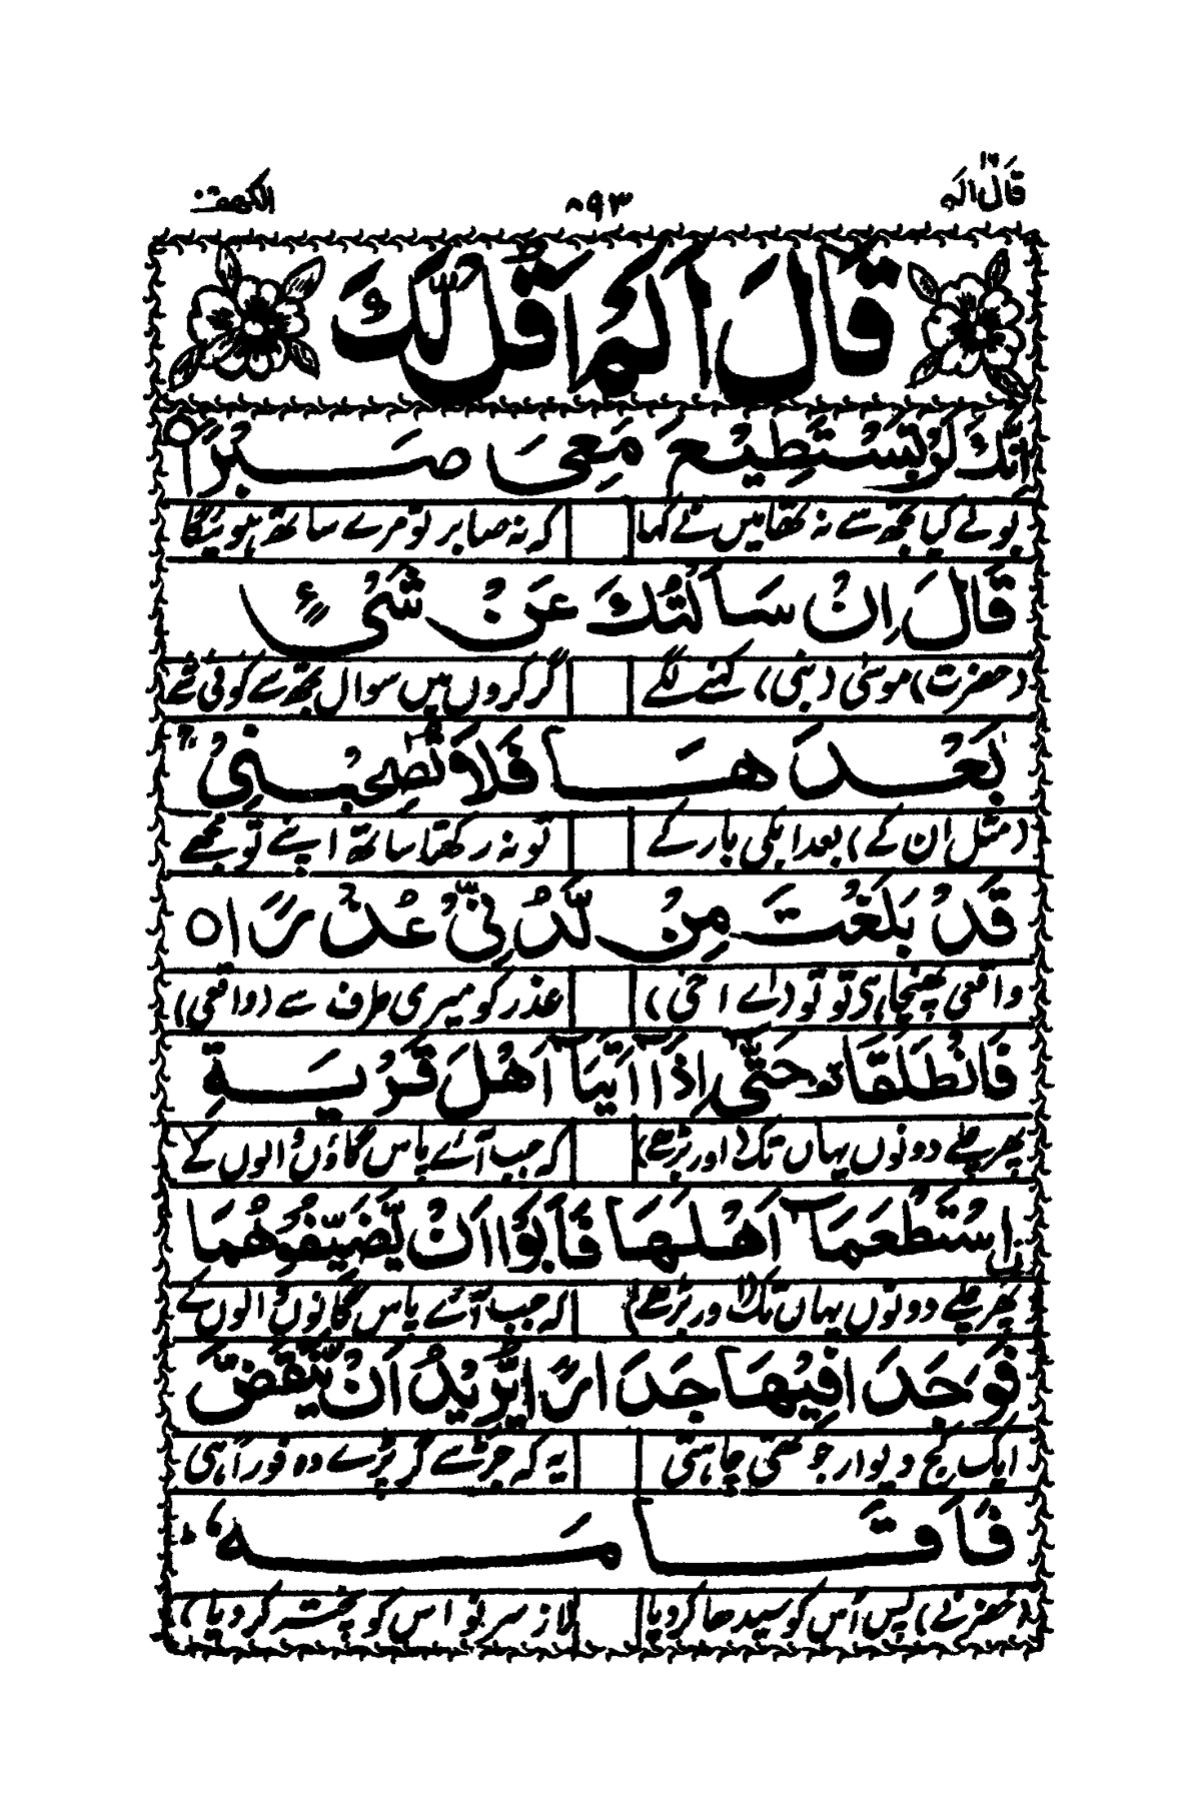 قَالَ اَلَم ۱۶ ۸۹۳ الكهف
قَالَ اَلَمْ اَقُلْ لَّكَ
اِنَّكَ لَنْ تَسْتَطِيْعَ مَعِىَ صَبْرًا ۝
بولے کیا تجھ سے نہ تھا میں نے کہا کہ نہ صابر تو مرے ساتھ ہوئیگا
قَالَ اِنْ سَاَلْتُكَ عَنْ شَىْءٍ
(حضرت) موسٰی (نبی) کہنے لگے گر کروں میں سوال تجھ سے کوئی شے
بَعْدَهَا فَلَا تُصٰحِبْنِىْ ۚ
(مثل ان کے) بعد اگلی بار کے تو نہ رکھنا ساتھ اپنے تو مجھے
قَدْ بَلَغْتَ مِنْ لَّدُنِّىْ عُذْرًا ۝
واقعی پہنچا ہی تو تو (اے اخی) عذر کو میری طرف سے (واقعی)
فَانْطَلَقَا ۥ حَتّٰۤى اِذَاۤ اَتَيَاۤ اَهْلَ قَرْيَةِ
پھر چلے دونوں یہاں تک (اور بڑھے) کہ جب آئے پاس گاؤں والوں کے
ۨاسْتَطْعَمَاۤ اَهْلَهَا فَاَبَوْا اَنْ يُّضَيِّفُوْهُمَا
پھر چلے دونوں یہاں تک (اور بڑھے) کہ جب آئے پاس گانوں والوں کے
فَوَجَدَا فِيْهَا جِدَارًا يُّرِيْدُ اَنْ يَّنْقَضَّ
ایک کج دیوار جو تھی چاہتی یہ کہ جڑ سے گر پڑے وہ فوراً ہی
فَاَقَامَهٗ ؕ
(خضر نے) پس اُس کو سیدھا کردیا (از سر نو اس کو پختہ کر دیا)